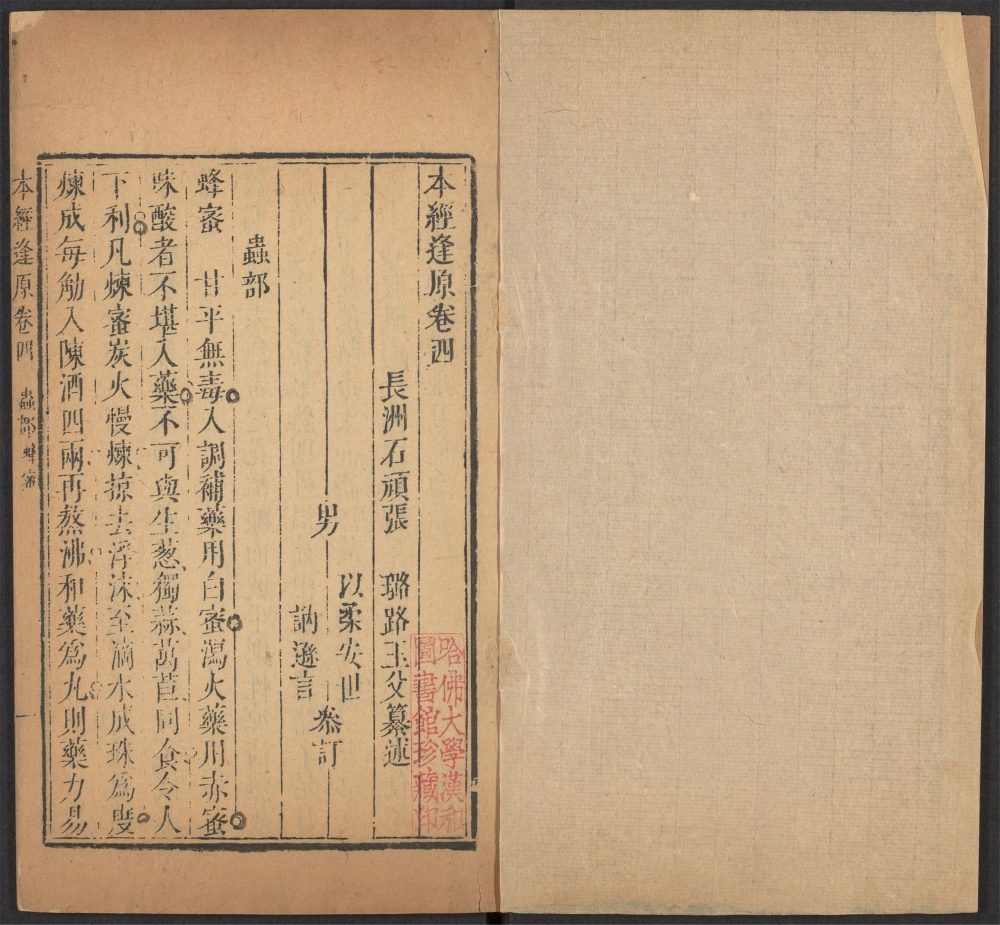 本經逢原卷四
長洲石頑張 璐路玉父纂述
男
以柔安世
訥遜言
叅訂
蟲部
蜂蜜 甘平無毒入調補藥用白蜜瀉火藥用赤蜜
味酸者不堪入藥不可與生葱獨蒜萵苣同食令人
下利凡煉蜜炭火慢煉掠去浮沫至滴水成珠爲度
煉成每觔入陳酒四兩再熬沸和藥爲丸則藥力易
本經逢原卷四 蟲部 蜂蜜 一
哈佛大學漢和
圖書館珍藏印